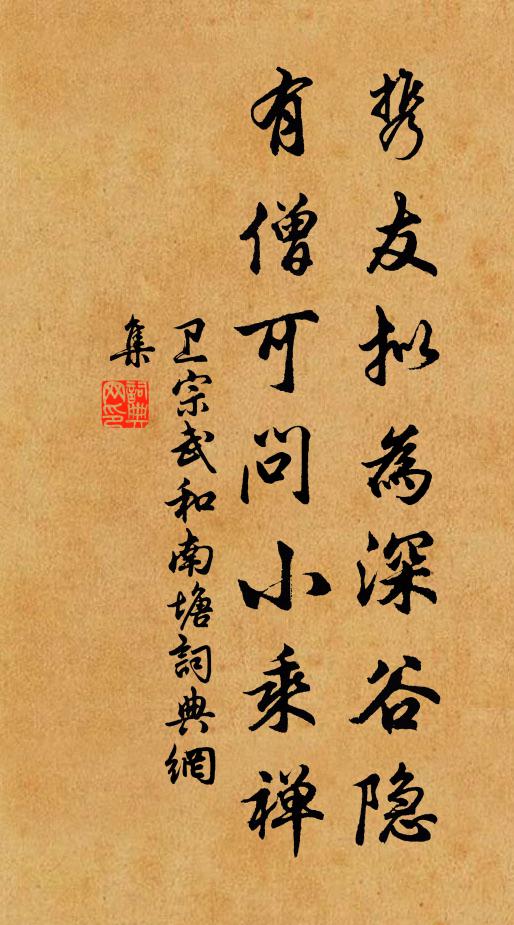 携友拟為深谷隐
有僧可问小乘禅
卫宗武和南塘詞典網
集
詞典網印